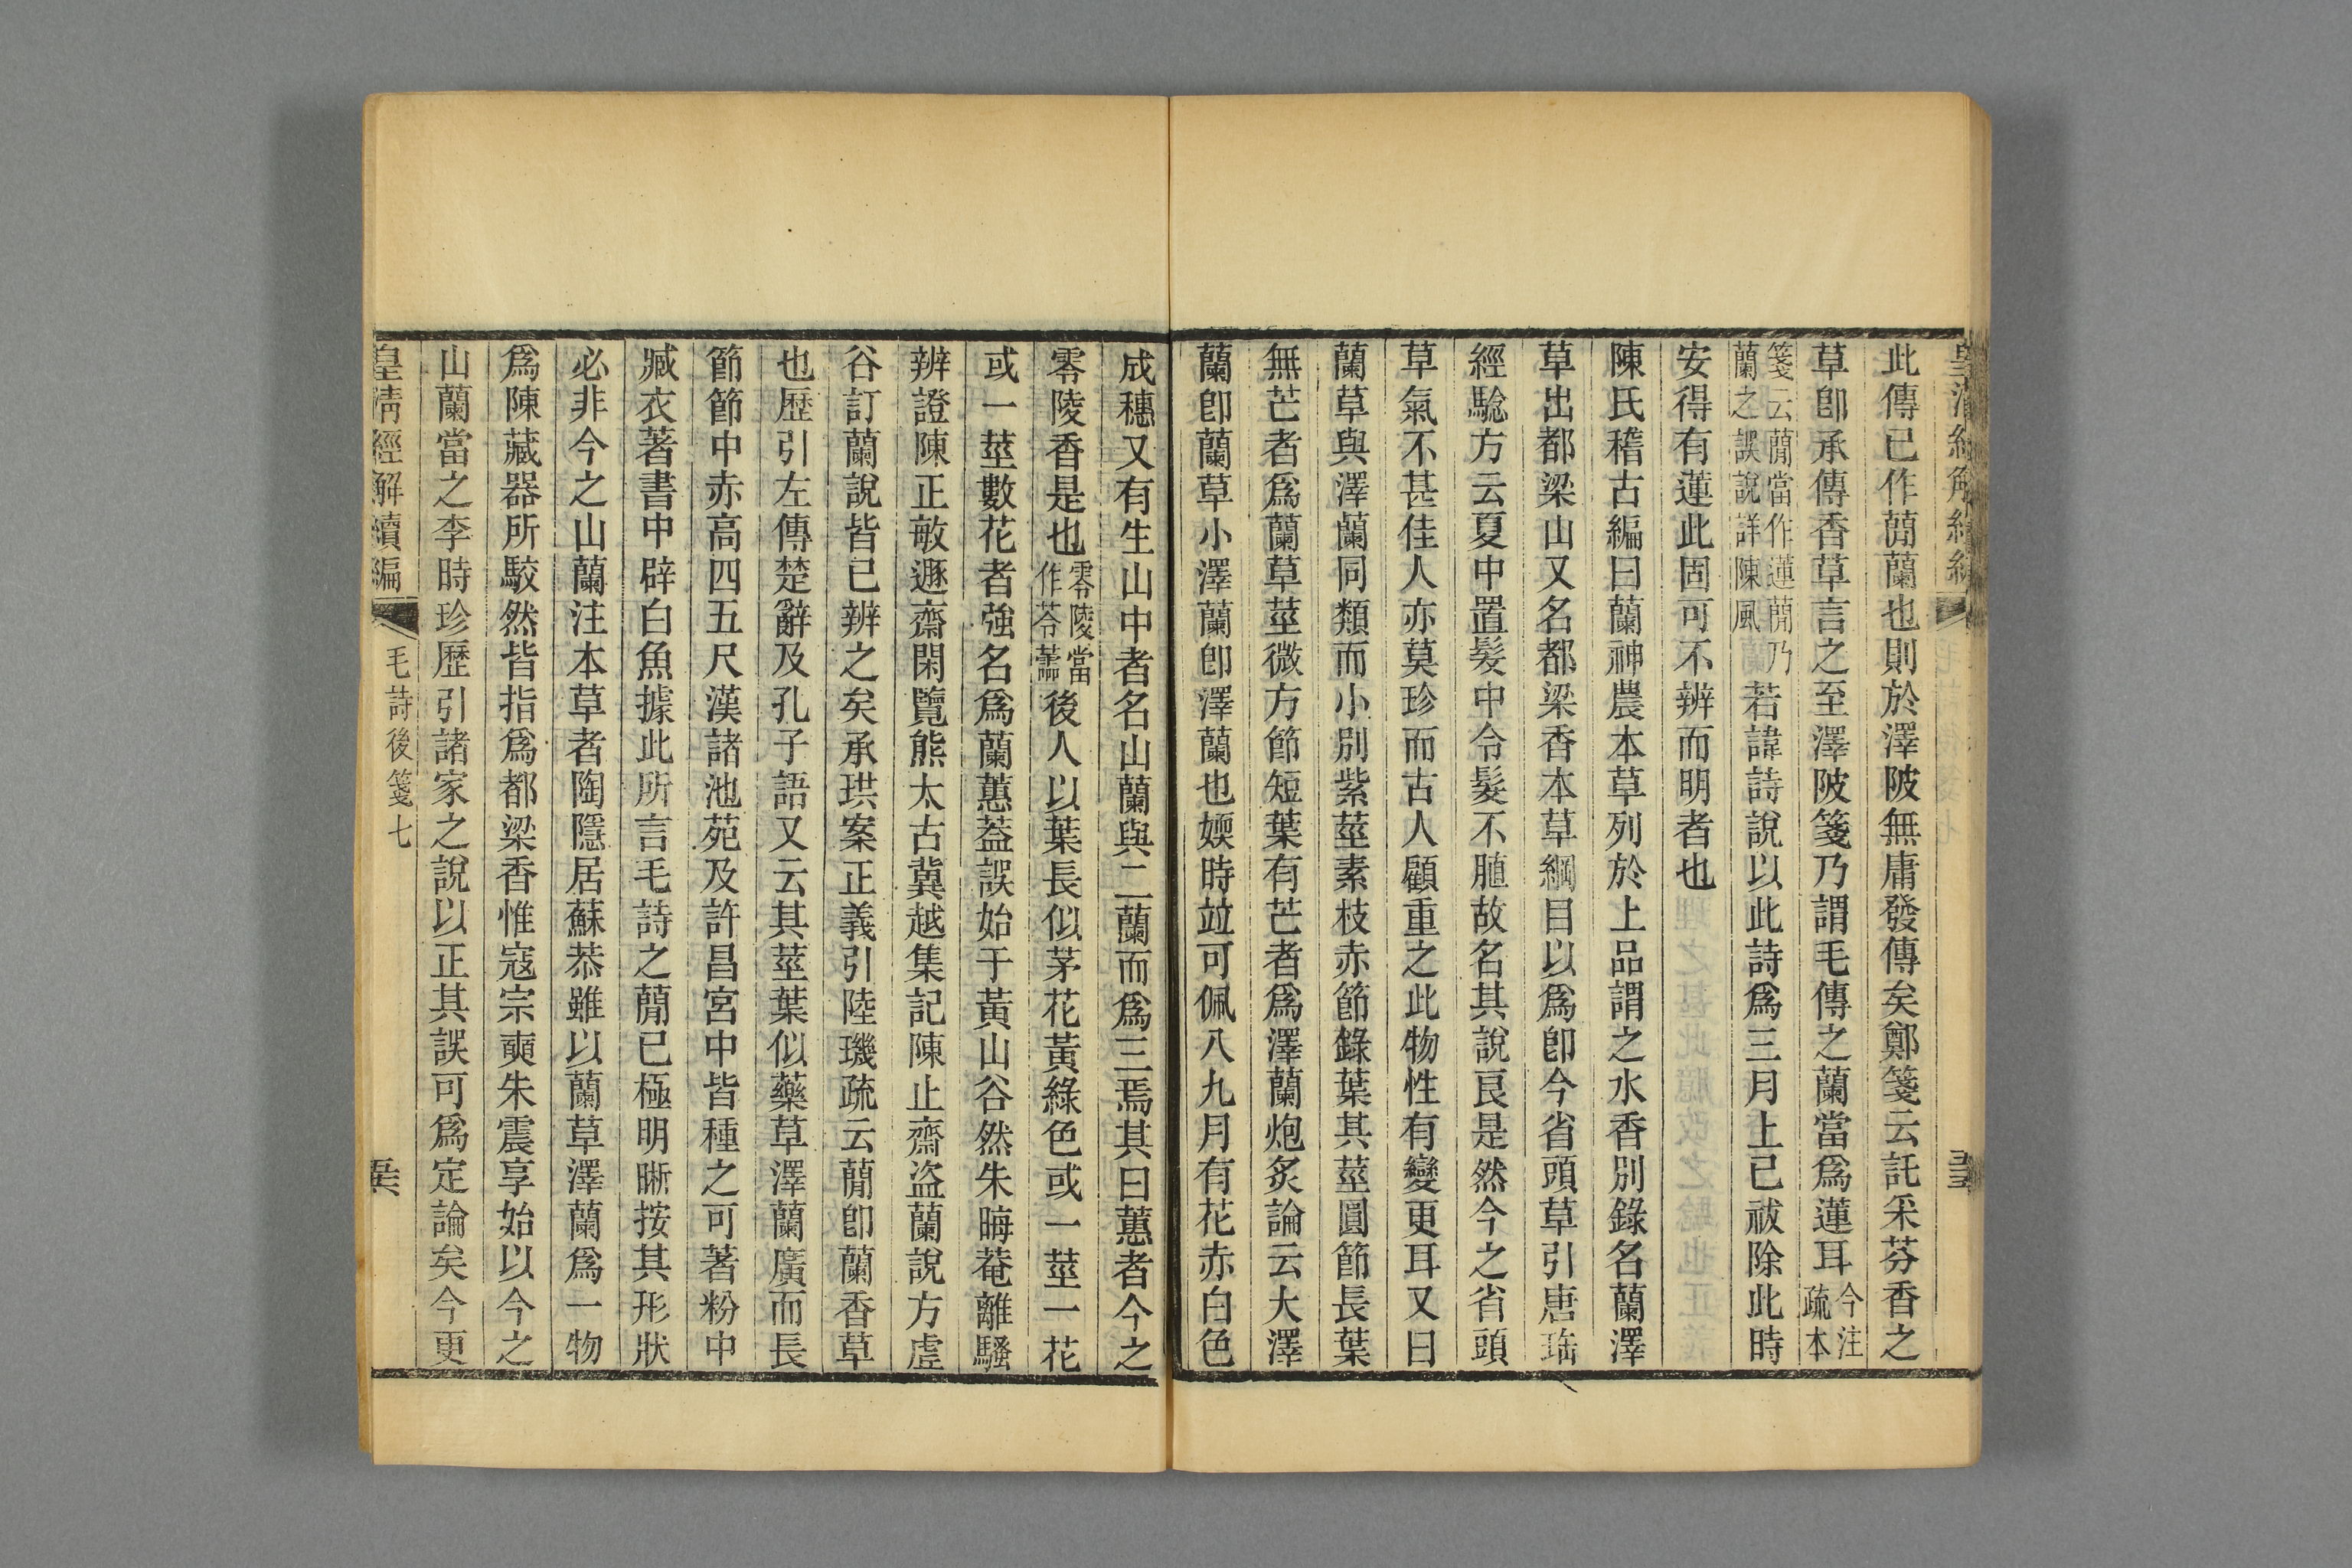 此傳已作蕑蘭也則於澤陂無庸發傳矣鄭箋云託采芬香之
草卽承傳香草言之至澤陂箋乃謂毛傳之蘭當爲蓮耳今注疏本
箋云蕑當作蓮蕑乃蘭之誤說詳陳風若諱詩說以此詩爲三月上巳祓除此時
安得有蓮此固可不辨而明者也
陳氏稽古編曰蘭神農本草列於上品謂之水香別錄名蘭澤
草出都梁山又名都梁香本草綱目以爲卽今省頭草引唐瑶
經驗方云夏中置髮中令髮不䐈故名其說良是然今之省頭
草氣不甚佳人亦莫珍而古人顧重之此物性有變更耳又曰
蘭草與澤蘭同類而小別紫莖素枝赤節錄葉其莖圓節長葉
無芒者爲蘭草莖微方節短葉有芒者爲澤蘭炮炙論云大澤
蘭卽蘭草小澤蘭卽澤蘭也㜛時竝可佩八九月有花赤白色
成穗又有生山中者名山蘭與二蘭而爲三焉其曰蕙者今之
零陵香是也零陵當作苓蘦後人以葉長似茅花黃綠色或一莖一花
或一莖數花者強名爲蘭蕙蓋誤始于黃山谷然朱晦菴離騷
辨證陳正敏遯齋閑覽熊太古冀越集記陳止齋盜蘭說方虛
谷訂蘭說皆已辨之矣承珙案正義引陸璣疏云蕑卽蘭香草
也歷引左傳楚辭及孔子語又云其莖葉似藥草澤蘭廣而長
節節中赤高四五尺漢諸池苑及許昌宮中皆種之可著粉中
藏衣著書中辟白魚據此所言毛詩之蕑已極明晰按其形狀
必非今之山蘭注本草者陶隱居蘇恭雖以蘭草澤蘭爲一物
爲陳藏器所駮然皆指爲都梁香惟寇宗奭朱震亨始以今之
山蘭當之李時珍歷引諸家之說以正其誤可爲定論矣今更
皇清經解續編 毛詩後箋七